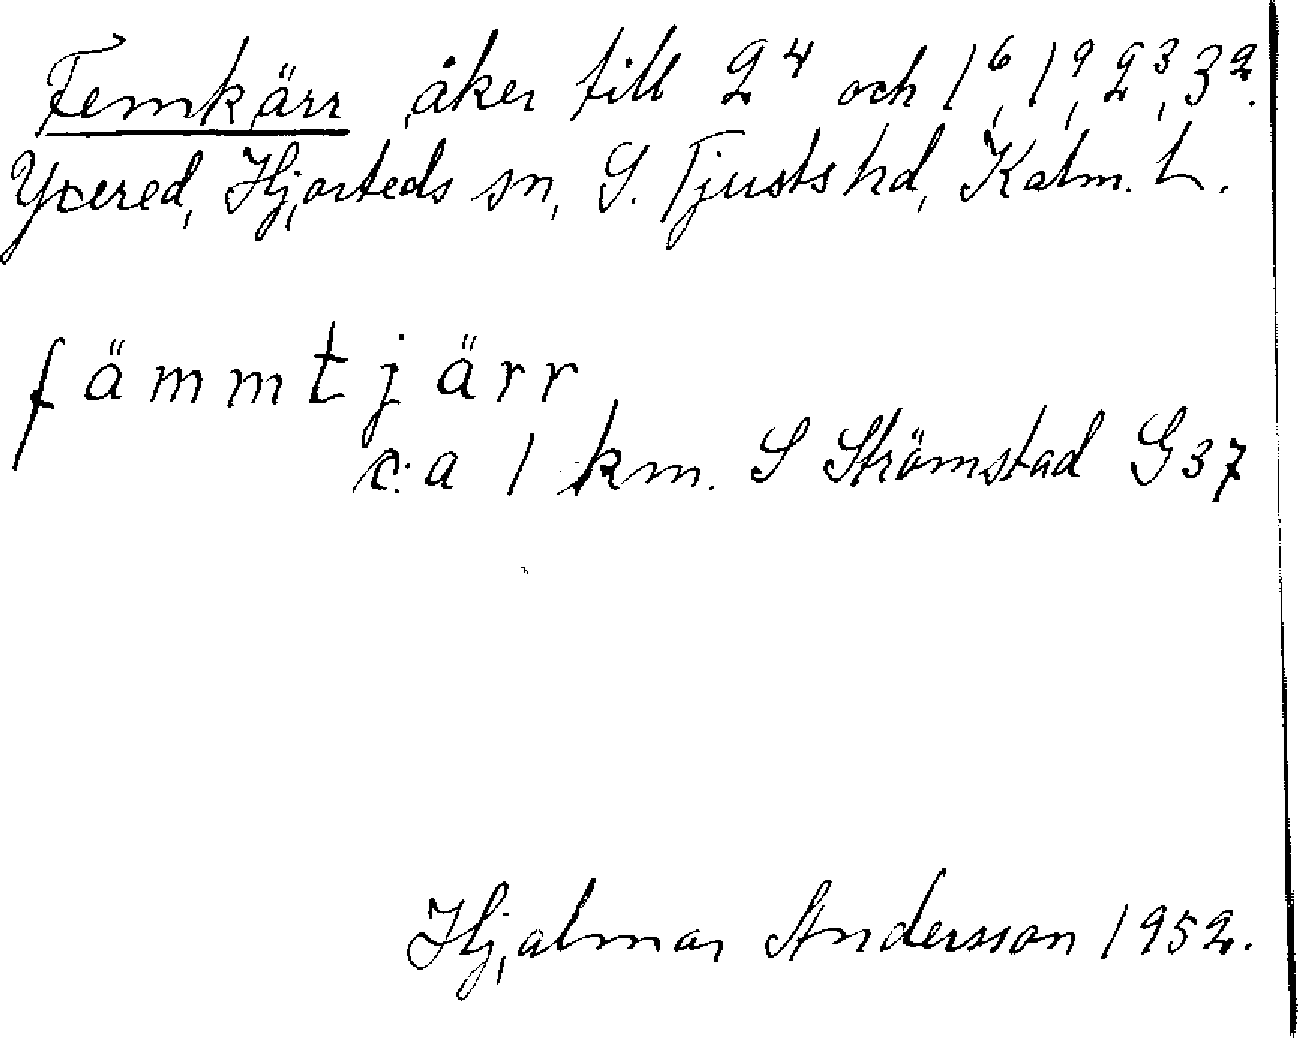 Femkärr åker till 2⁴ och 1⁶, 1⁹, 2³, 3².
Yxered, Hjorteds sn, S. Tjusts hd, Kalm. L.
fämmtjärr
c:a 1 km. S Strömstad G 37
Hjalmar Andersson 1952.